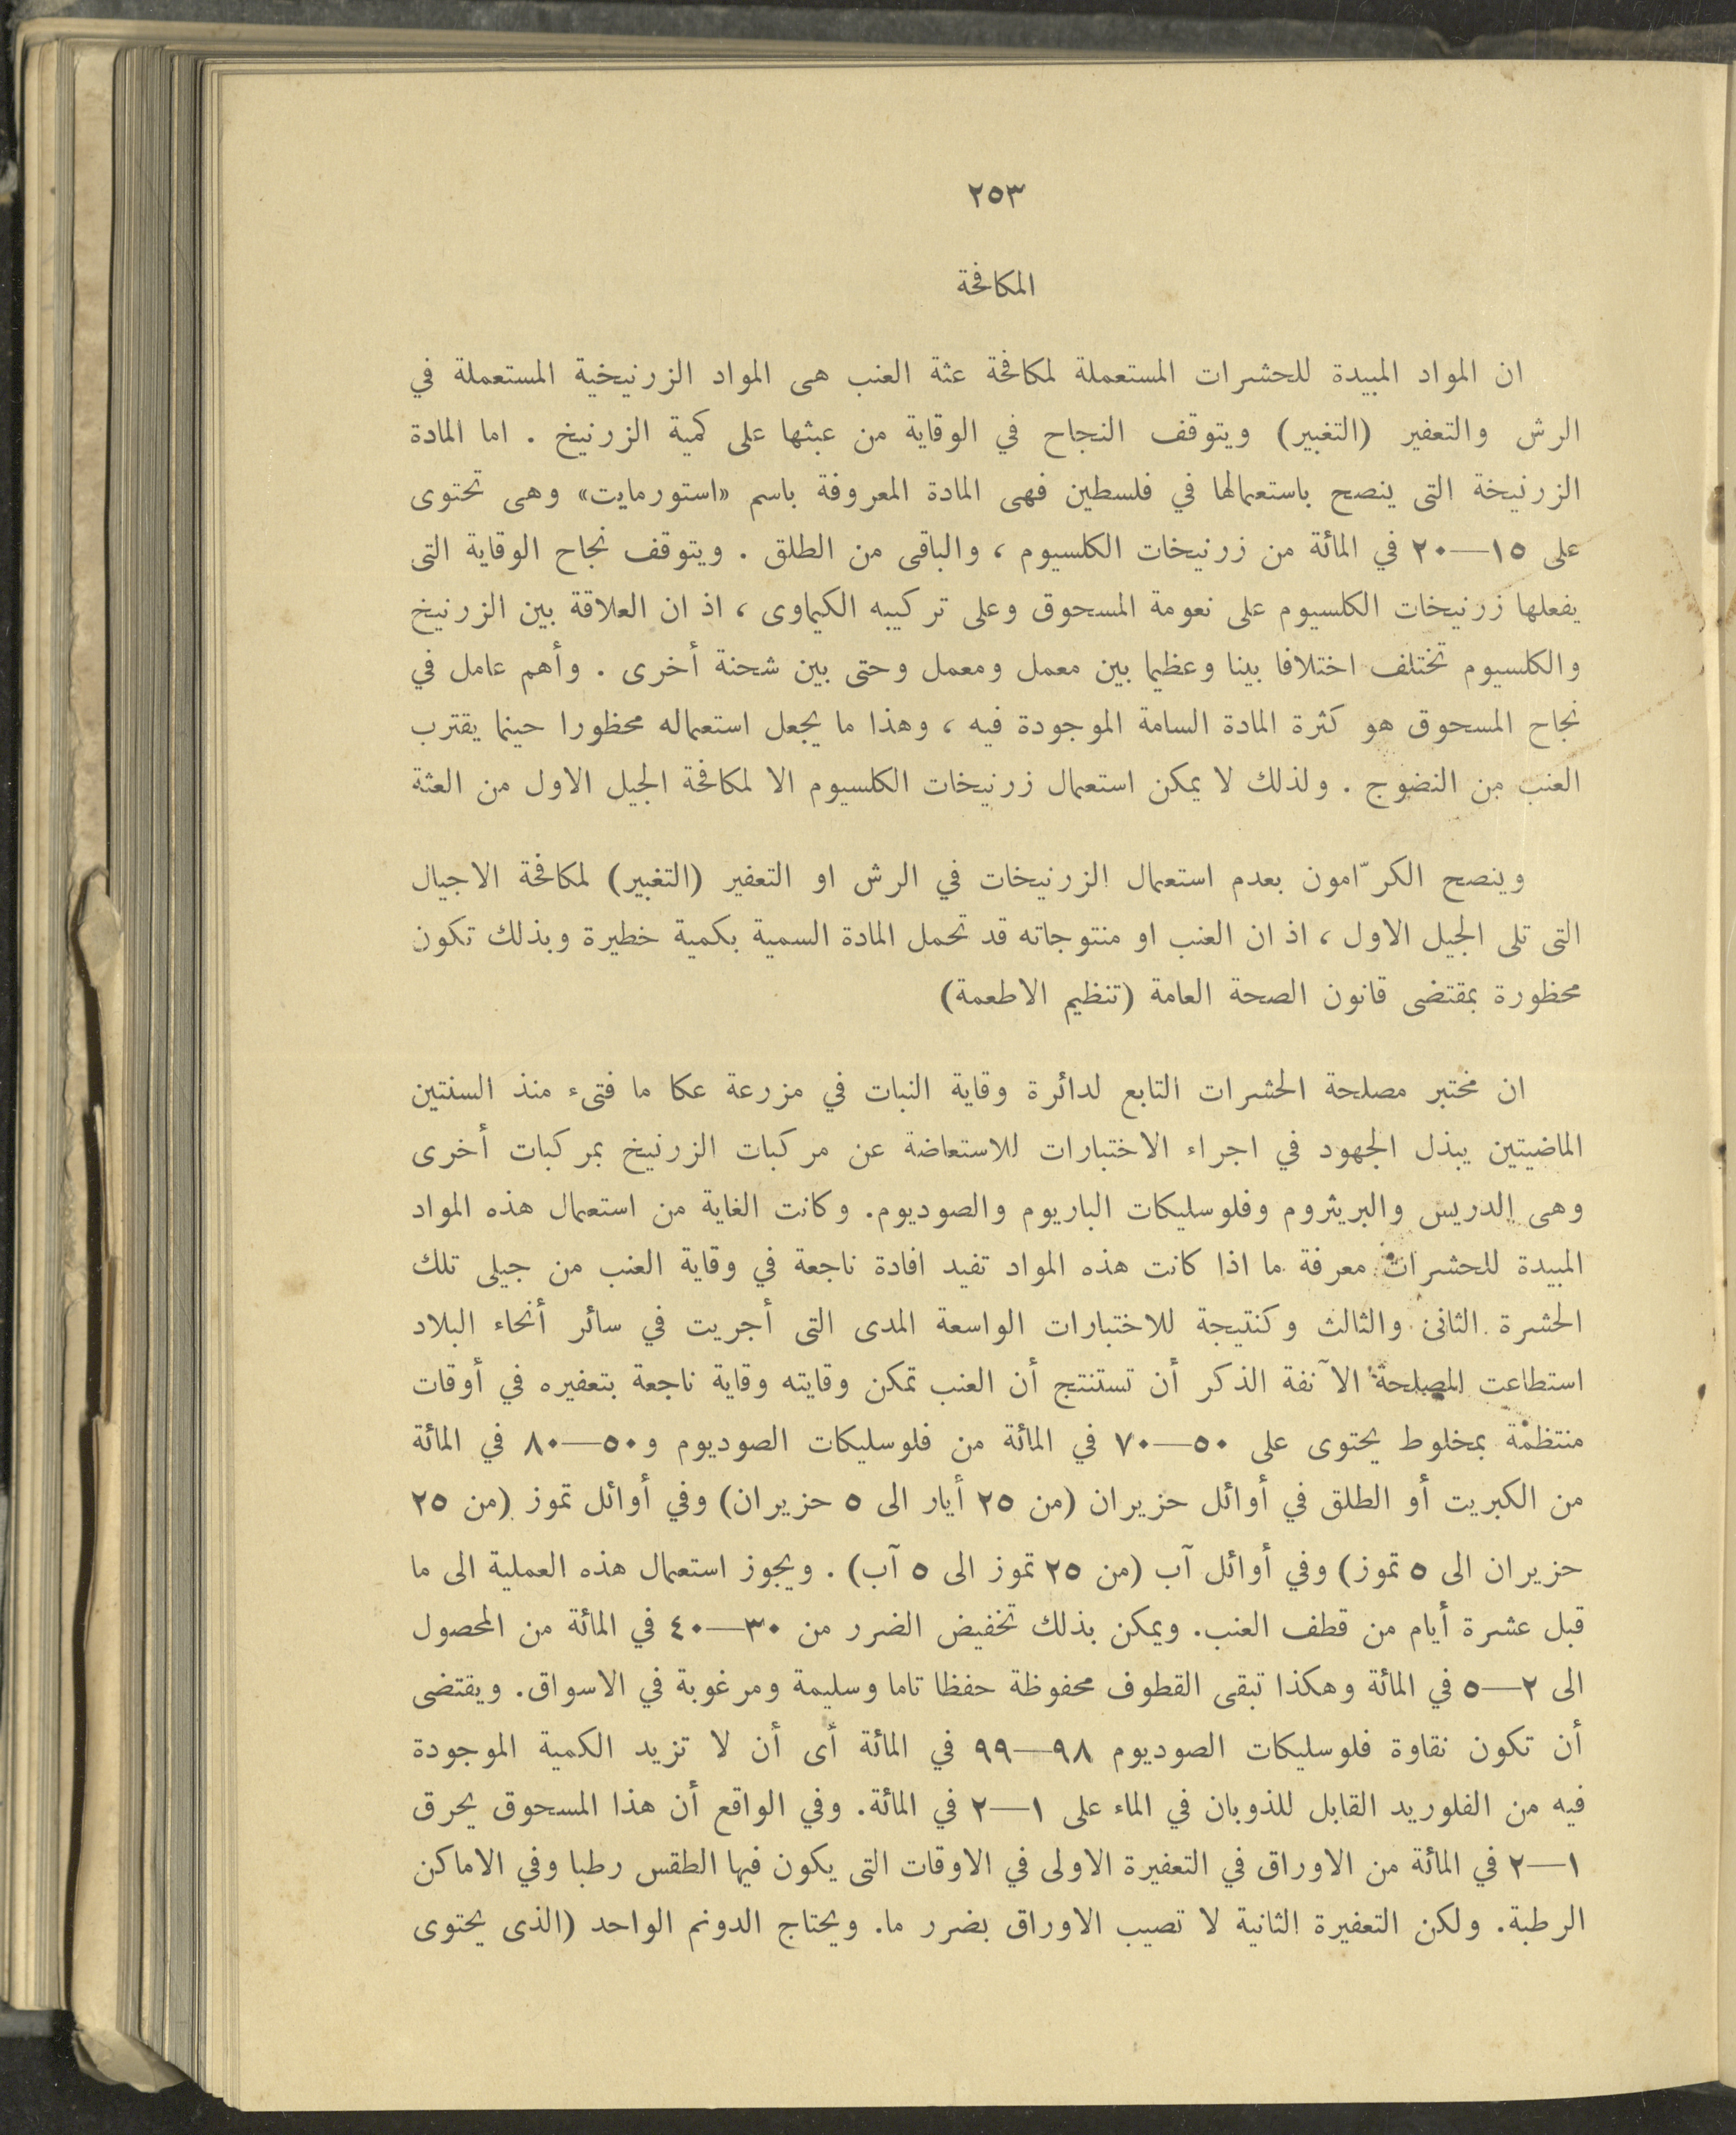 ٢٥٣
المكافحة
ان المواد المبيدة للحشرات المستعملة لمكافحة عثة العنب هى المواد الزرنيخية المستعملة في
الرش والتعفير (التغبير) ويتوقف النجاح في الوقاية من عبثها على كمية الزرنيخ . اما المادة
الزرنيخة التى ينصح باستعمالها في فلسطين فهى المادة المعروفة باسم «استورمايت» وهى تحتوى
على ١٥—٢٠ في المائة من زرنيخات الكلسيوم ، والباقى من الطلق . ويتوقف نجاح الوقاية التى
يفعلها زرنيخات الكلسيوم على نعومة المسحوق وعلى تركيبه الكيماوى ، اذ ان العلاقة بين الزرنيخ
والكلسيوم تختلف اختلافا بينا وعظيما بين معمل ومعمل وحتى بين شحنة أخرى . وأهم عامل في
نجاح المسحوق هو كثرة المادة السامة الموجودة فيه ، وهذا ما يجعل استعماله محظورا حينما يقترب
العنب من النضوج . ولذلك لا يمكن استعمال زرنيخات الكلسيوم الا لمكافحة الجيل الاول من العثة
وينصح الكرّامون بعدم استعمال الزرنيخات في الرش او التعفير (التغبير) لمكافحة الاجيال
التى تلى الجيل الاول ، اذ ان العنب او منتوجاته قد تحمل المادة السمية بكمية خطيرة وبذلك تكون
محظورة بمقتضى قانون الصحة العامة (تنظيم الاطعمة)
ان مختبر مصلحة الحشرات التابع لدائرة وقاية النبات في مزرعة عكا ما فتىء منذ السنتين
الماضيتين يبذل الجهود في اجراء الاختبارات للاستعاضة عن مركبات الزرنيخ بمركبات أخرى
وهى الدريس والبريثروم وفلوسليكات الباريوم والصوديوم. وكانت الغاية من استعمال هذه المواد
المبيدة للحشرات معرفة ما اذا كانت هذه المواد تفيد افادة ناجعة في وقاية العنب من جيلى تلك
الحشرة الثانى والثالث وكنتيجة للاختبارات الواسعة المدى التى أجريت في سائر أنحاء البلاد
استطاعت المصلحة الآنفة الذكر أن تستنتج أن العنب تمكن وقايته وقاية ناجعة بتعفيره في أوقات
منتظمة بمخلوط يحتوى على ٥٠—٧٠ في المائة من فلوسليكات الصوديوم و٥٠—٨٠ في المائة
من الكبريت أو الطلق في أوائل حزيران (من ٢٥ أيار الى ٥ حزيران) وفي أوائل تموز (من ٢٥
حزيران الى ٥ تموز) وفي أوائل آب (من ٢٥ تموز الى ٥ آب) . ويجوز استعمال هذه العملية الى ما
قبل عشرة أيام من قطف العنب. ويمكن بذلك تخفيض الضرر من ٣٠—٤٠ في المائة من المحصول
الى ٢—٥ في المائة وهكذا تبقى القطوف محفوظة حفظا تاما وسليمة ومرغوبة في الاسواق. ويقتضى
أن تكون نقاوة فلوسليكات الصوديوم ٩٨—٩٩ في المائة أى أن لا تزيد الكمية الموجودة
فيه من الفلوريد القابل للذوبان في الماء على ١—٢ في المائة. وفي الواقع أن هذا المسحوق يحرق
١—٢ في المائة من الاوراق في التعفيرة الاولى في الاوقات التى يكون فيها الطقس رطبا وفي الاماكن
الرطبة. ولكن التعفيرة الثانية لا تصيب الاوراق بضرر ما. ويحتاج الدونم الواحد (الذى يحتوى